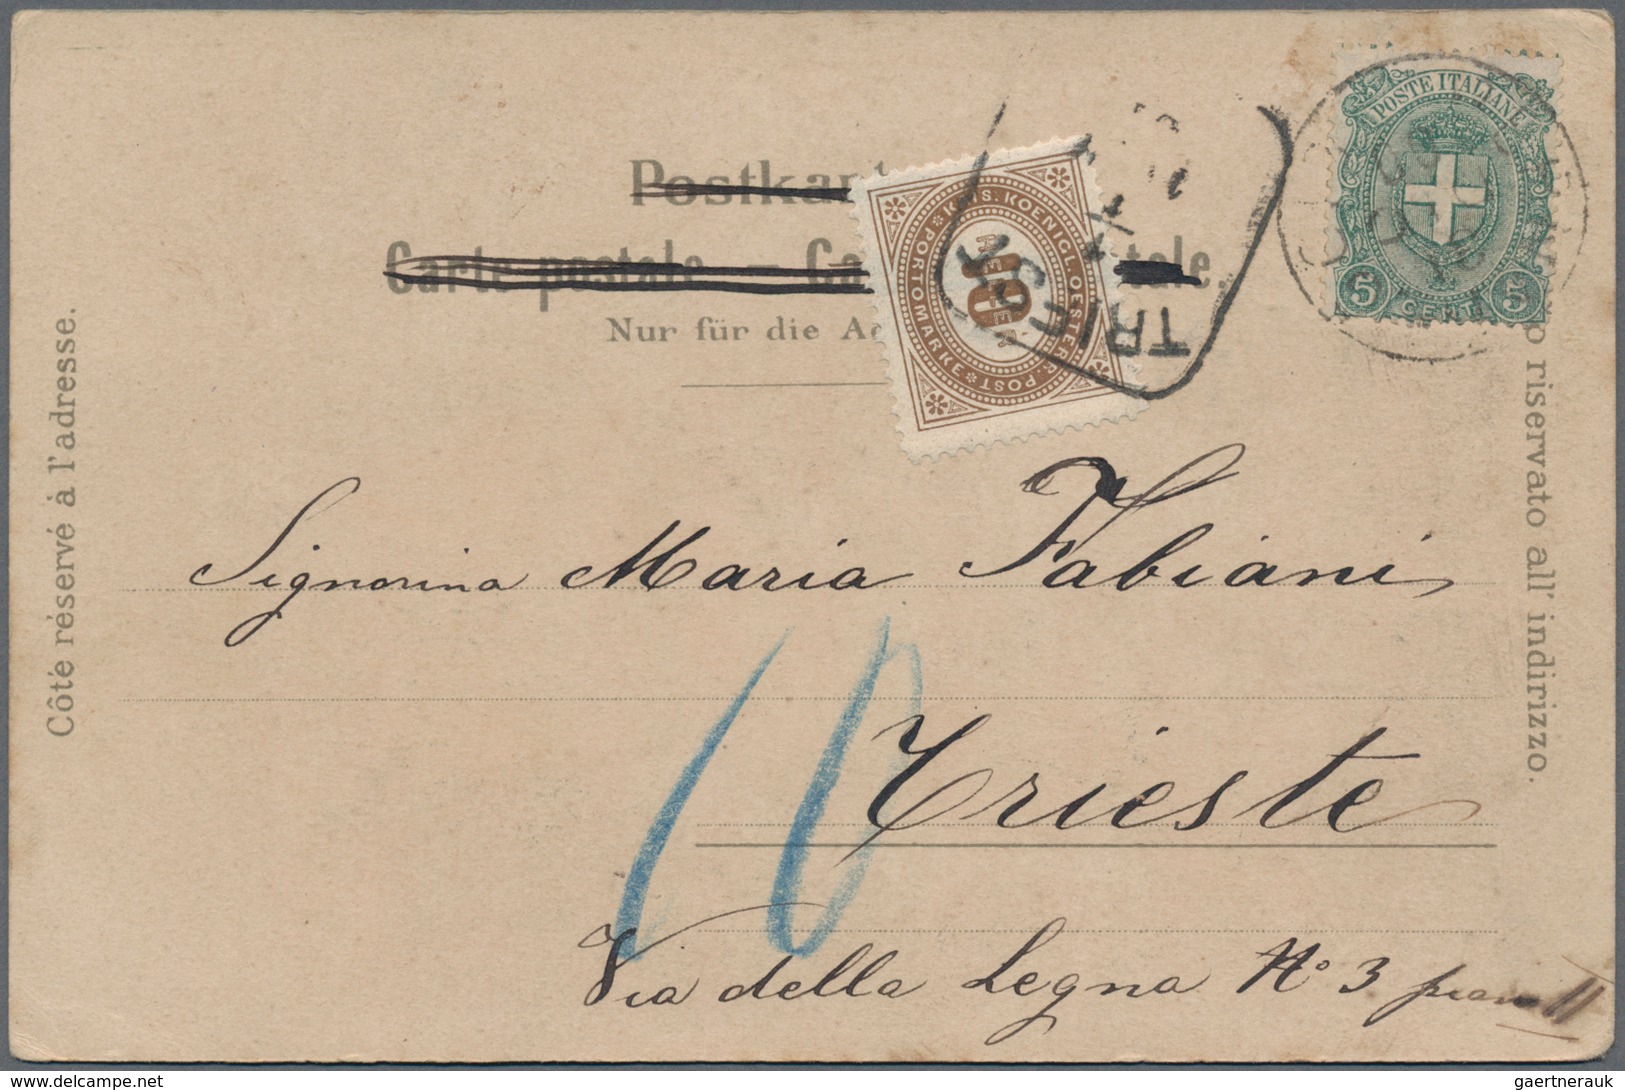 POSTE ITALIANE
5 CENT. 5
Postkart
Carte postale — Ca tale
Nur für die Ad
KAIS. KOENIGL. OESTERR. POST
PORTOMARKE
10
TRIE
Côté réservé à l'adresse.
riservato all' indirizzo.
Signorina Maria Fabiani
10
Trieste
Via della Legna No 3 piano II
gaertnerauk